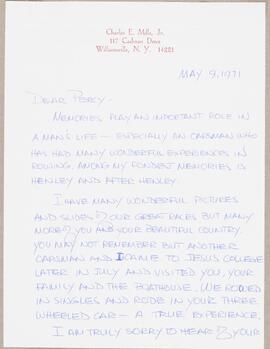 Charles E. Mills, Jr.
117 Cadman Drive
Williamsville, N. Y. 14221
MAY 9, 1971
DEAR PERCY-
MEMORIES PLAY AN IMPORTANT ROLE IN
A MAN'S LIFE - ESPECIALLY AN OARSMAN WHO
HAS HAD MANY WONDERFUL EXPERIENCES IN
ROWING. AMONG MY FONDEST MEMORIES IS
HENLEY AND AFTER HENLEY.
I HAVE MANY WONDERFUL PICTURES
AND SLIDES OF OUR GREAT RACES BUT MANY
MORE OF YOU AND YOUR BEAUTIFUL COUNTRY.
YOU MAY NOT REMEMBER BUT ANOTHER
OARSMAN AND I CAME TO JESUS COLLEGE
LATER IN JULY AND VISITED YOU, YOUR
FAMILY AND THE BOATHOUSE. WE ROWED
IN SINGLES AND RODE IN YOUR THREE
WHEELED CAR - A TRUE EXPERIENCE.
I AM TRULY SORRY TO HEAR OF YOUR